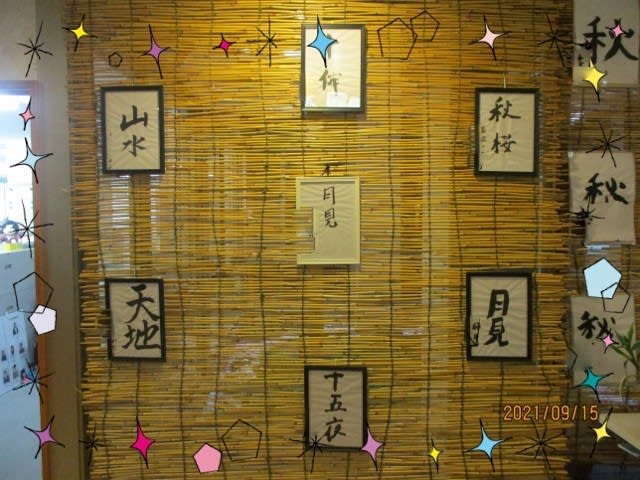 山水
秋桜
月見
天地
月見
十五夜
秋
秋
秋
2021/09/15